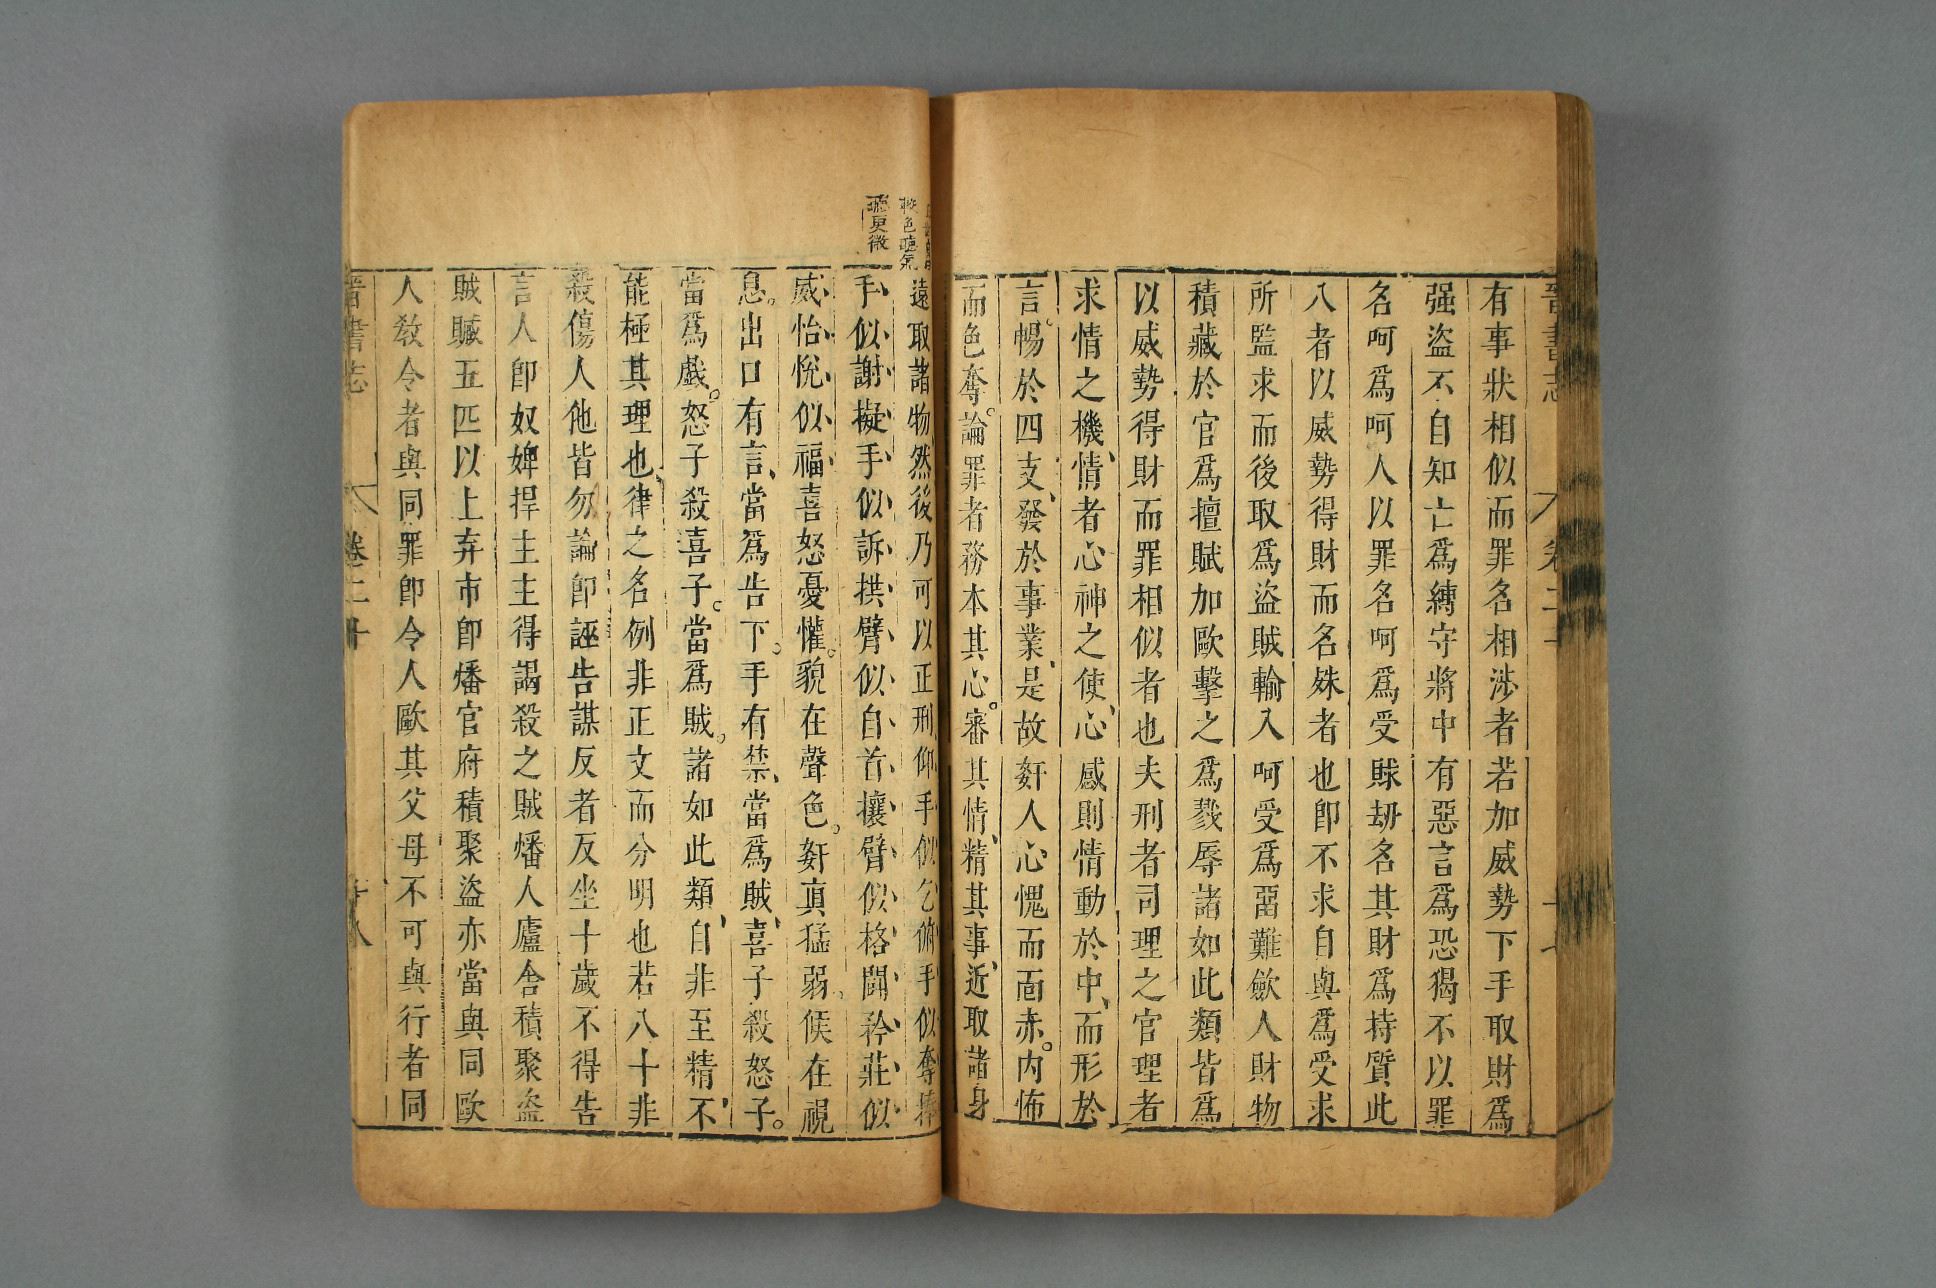 晉書志 卷三十 十七
有事狀相似而罪名相涉者若加威勢下手取財爲
强盜不自知亡爲縛守將中有惡言爲恐猲不以罪
名呵爲呵人以罪名呵爲受賕劫名其財爲持質此
八者以威勢得財而名殊者也卽不求自與爲受求
所監求而後取爲盜賊輸入呵受爲畱難斂人財物
積藏於官爲擅賦加歐擊之爲戮辱諸如此類皆爲
以威勢得財而罪相似者也夫刑者司理之官理者
求情之機情者心神之使心感則情動於中而形於
言暢於四支發於事業是故奸人心愧而面赤内怖
而色奪論罪者務本其心審其情精其事近取諸身
遠取諸物然後乃可以正刑仰手似乞俯手似奪捧
手似謝擬手似訴拱臂似自首攘臂似格鬬矜莊似
威怡悅似福喜怒憂懽貌在聲色奸真猛弱候在視
息出口有言當爲告下手有禁當爲賊喜子殺怒子
當爲戲怒子殺喜子當爲賊諸如此類自非至精不
能極其理也律之名例非正文而分明也若八十非
殺傷人他皆勿論卽誣告謀反者反坐十歲不得告
言人卽奴婢捍主主得謁殺之賊燔人廬舍積聚盜
賊贓五匹以上弃市卽燔官府積聚盜亦當與同歐
人敎令者與同罪卽令人歐其父母不可與行者同
晉書志 卷三十 十八